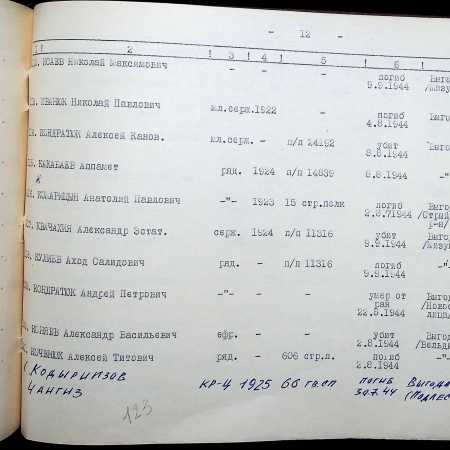 - 12 -
1! 2 ! 3 ! 4 ! 5 ! 6 !
ИСАЕВ Николай Максимович - - - погиб
9.9.1944
ИВАНЮК Николай Павлович мл.серж.1922 - погиб
4.8.1944
КОНДРАТЮК Алексей Канов. мл.серж. - п/п 24192 убит
8.8.1944
КАКАБАЕВ Аппамет ряд. 1924 п/п 14839 8.8.1944 -"-
КОМАРИЦЫН Анатолий Павлович -"- 1923 15 стр.полк погиб
2.8.71944 /Стрый
р-н/
КВАЧАХИЯ Александр Эстат. серж. 1924 п/п 11316 убит
9.9.1944
КУЛИЕВ Аход Салидович ряд. - п/п 11316 погиб
9.9.1944
КОНДРАТЮК Андрей Петрович -"- - - умер от
ран
22.8.1944
КОНЯЕВ Александр Васильевич ефр. - - убит
2.8.1944
КОЧЕНЮК Алексей Титович ряд. - 606 стр.п. погиб
2.8.1944 -"-
КОДЫРИПЗОВ КР-Ц 1925 66 гв.сп погиб Выгода
ЧАНГИЗ 30.7.44
123